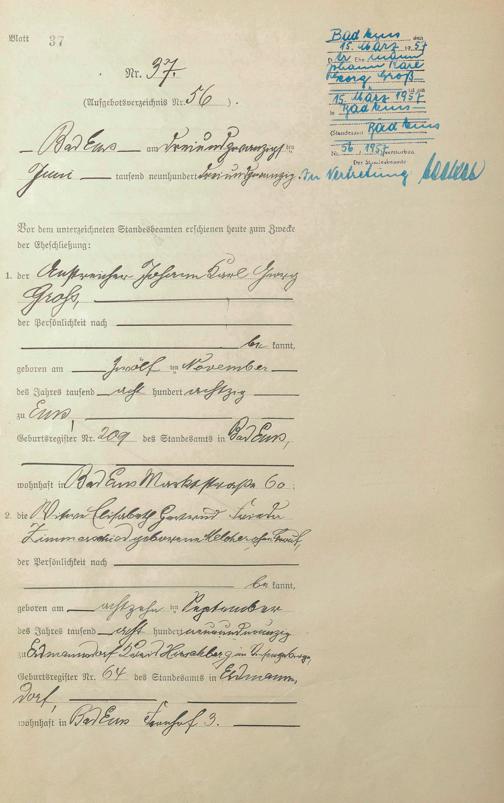 Blatt 37
Nr. 37.
(Aufgebotsverzeichnis Nr. 56).
Bad Ems am dreiundzwanzigsten
Juni tausend neunhundert dreiundzwanzig.
Bad Ems den
15. März 1957
Der Ehemann
Johann Karl
Georg Groß
ist am
15. März 1957
in Bad Ems
Standesamt Bad Ems
Nr. 56, 1957 verstorben
Der Standesbeamte
In Vertretung
Vor dem unterzeichneten Standesbeamten erschienen heute zum Zwecke
der Eheschließung:
1. der Anstreicher Johann Karl Georg
Groß,
der Persönlichkeit nach
be kannt,
geboren am zwölf ten November
des Jahres tausend acht hundert achtzig
zu Ems,
Geburtsregister Nr. 209 des Standesamts in Bad Ems,
wohnhaft in Bad Ems Marktstraße 60;
2. die Witwe Elisabeth Gertrud Frieda
Zimmerschied geborene
der Persönlichkeit nach
be kannt,
geboren am achtzehn ten September
des Jahres tausend acht hundert neunundneunzig
zu Erdmannsdorf Kreis Hirschberg im Riesengebirge,
Geburtsregister Nr. 64 des Standesamts in Erdmanns,
dorf,
wohnhaft in Bad Ems 3.